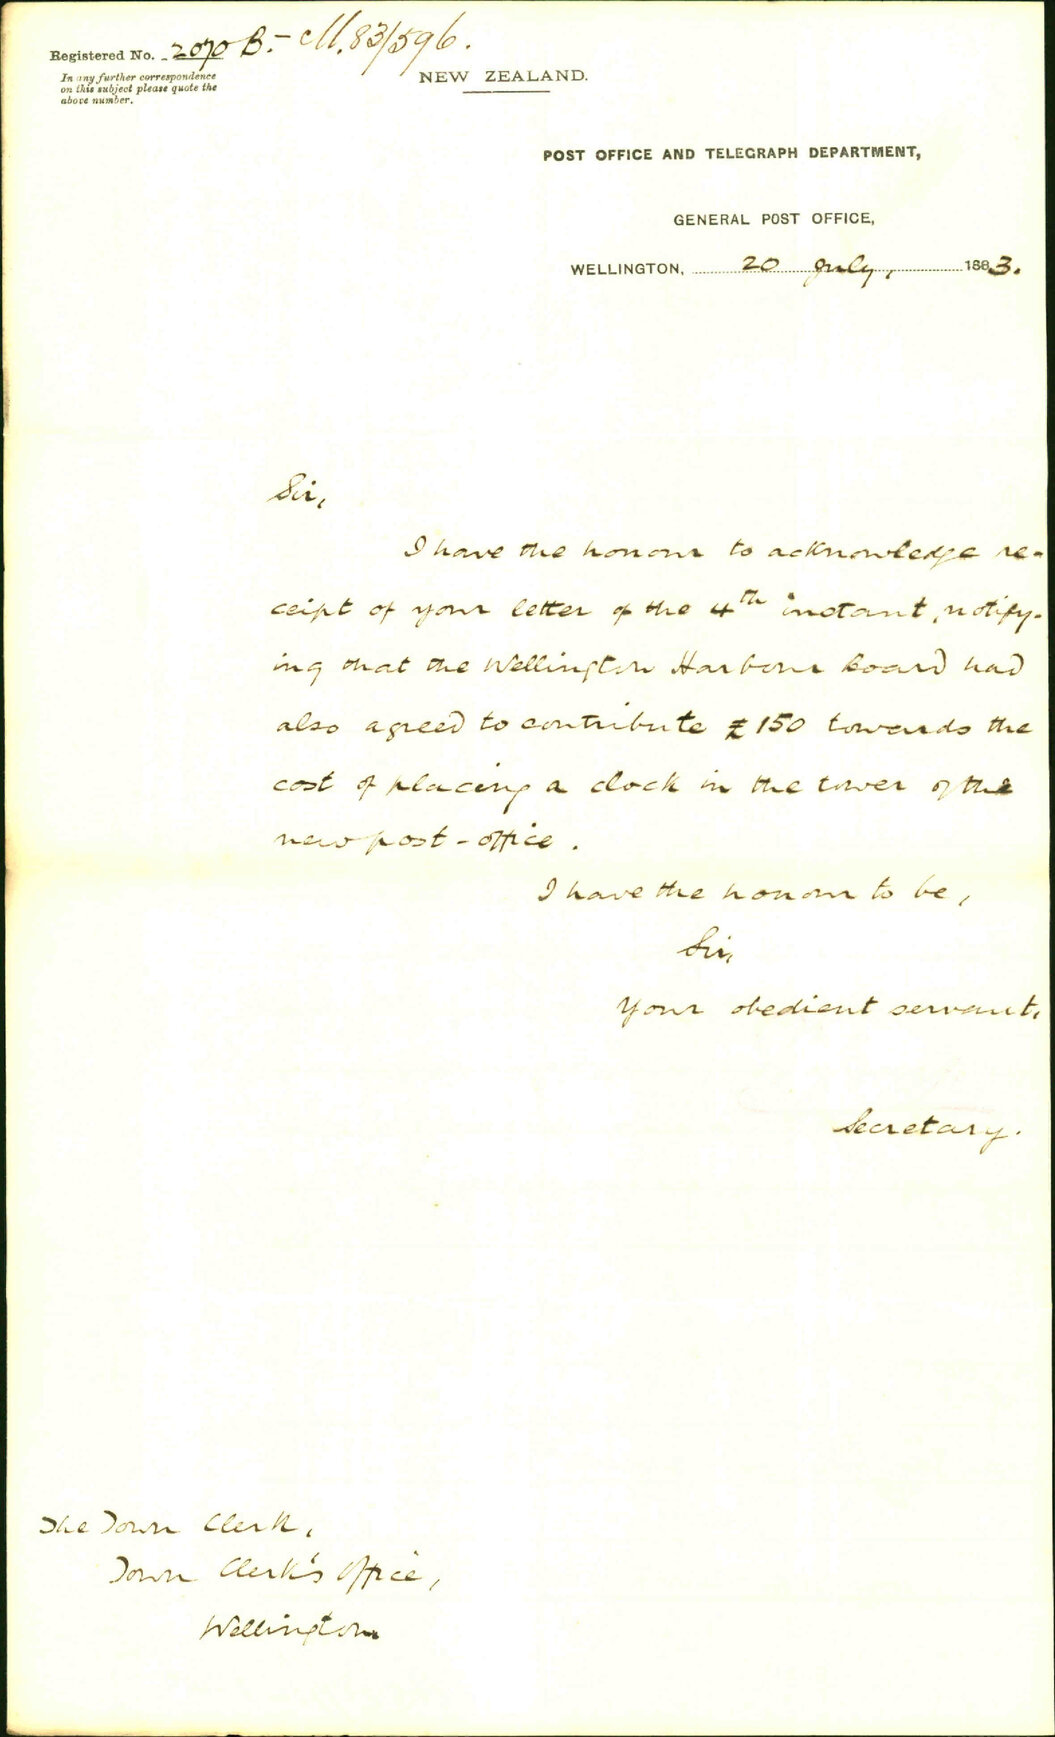 Registered No. 2070 B. - M.83/596.
In any further correspondence
on this subject please quote the
above number.
NEW ZEALAND.
POST OFFICE AND TELEGRAPH DEPARTMENT,
GENERAL POST OFFICE,
WELLINGTON, 20 July, 1883.
Sir,
I have the honour to acknowledge re-
ceipt of your letter of the 4th instant, notify-
ing that the Wellington Harbour Board had
also agreed to contribute £150 towards the
cost of placing a clock in the tower of the
new post-office.
I have the honour to be,
Sir,
Your obedient servant,
Secretary.
The Town Clerk,
Town Clerk's Office,
Wellington